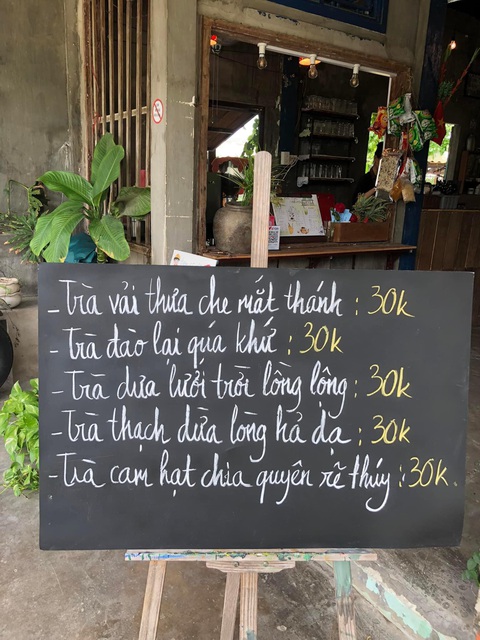 - Trà vải thưa che mắt thánh : 30k
- Trà đào lại quá khứ : 30k
- Trà dưa lưới trời lồng lộng : 30k
- Trà thạch dừa lòng hả dạ : 30k
- Trà cam hạt chia quyên rẽ thúy : 30k.